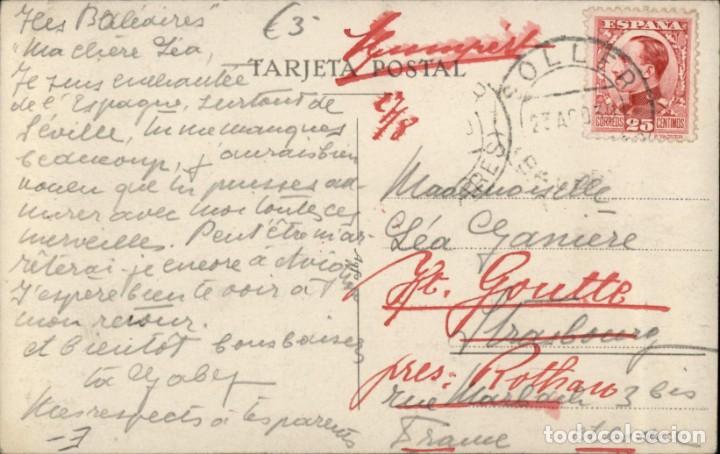 Iles Baléaires
Ma chère Léa,
Je suis enchantée
de l'Espagne, surtout de
Séville, tu me manques
beaucoup, j'aurais bien
voulu que tu puisses ad-
mirer avec moi toutes ces
merveilles. Peut être m'ar-
rêterai-je encore à Avignon
J'espère bien te voir à
mon retour.
A bientôt bons baisers
ta Gaby
Mes respects à tes parents
€3
-3
TARJETA POSTAL
27/8
ESPAÑA
CORREOS 25 CENTIMOS
SOLLER
23 AGO
Mademoiselle
Léa Ganière
Ht. Goutte
Strasbourg
près: Rothau
rue 3 bis
France
todocoleccion.net